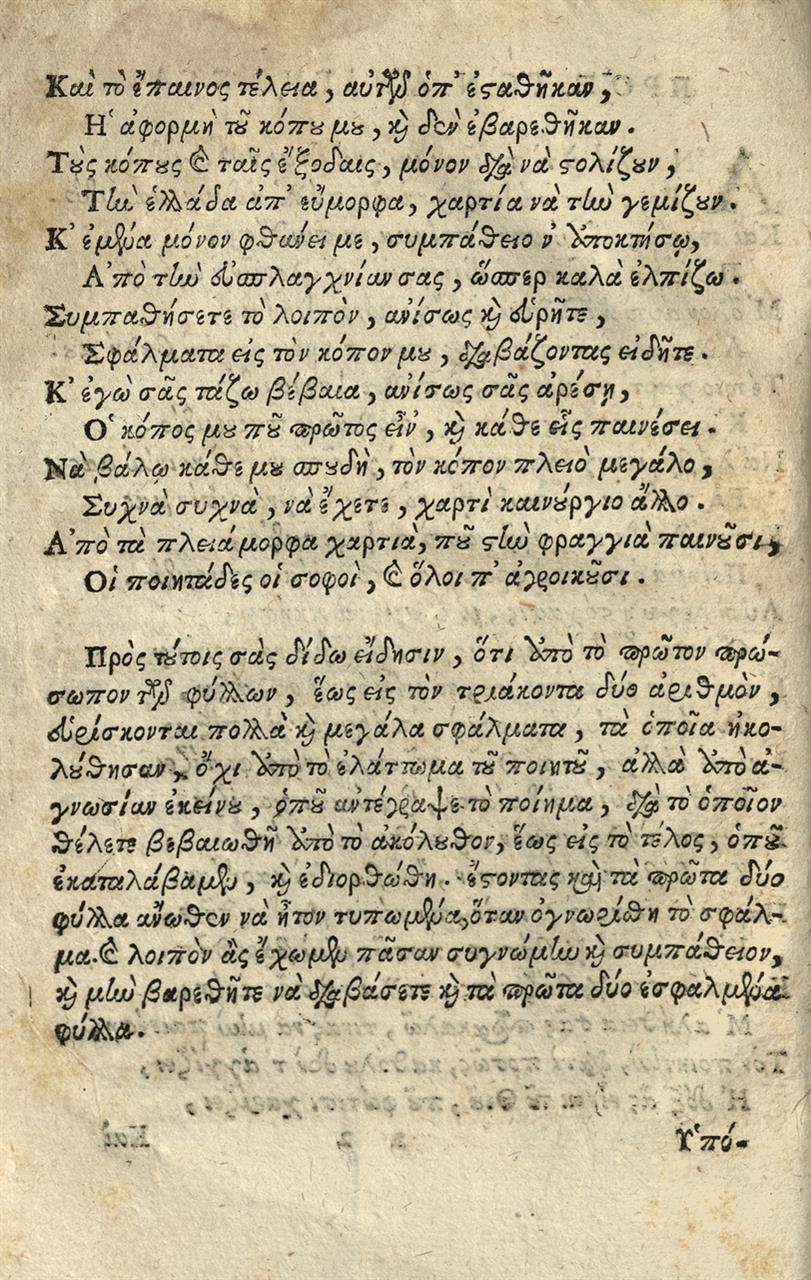 Καὶ τὸ ἔπαινος τέλεια, αὐτῶν ὁπ' ἐσταθῆκαν,
Η῾ ἀφορμὴ τοῦ κόπου μου, καὶ δὲν ἐβαρεθῆκαν.
Τοὺς κόπους καὶ ταῖς ἔξοδαις, μόνον διὰ νὰ στολίζουν,
Τὴν ἑλλάδα ἀπ' εὔμορφα, χαρτία νὰ τὴν γεμίζουν.
Κ' ἐμένα μόνον φθάνει με, συμπάθειο ν' ὑποκτήσω,
Α᾿πὸ τὴν εὐσπλαγχνίαν σας, ὥσπερ καλὰ ἐλπίζω.
Συμπαθήσετε τὸ λοιπὸν, ἀνίσως καὶ εὑρῆτε,
Σφάλματα εἰς τὸν κόπον μου, διαβάζοντας εἰδῆτε.
Κ' ἐγὼ σᾶς τάζω βέβαια, ἀνίσως σᾶς ἀρέσῃ,
Ο῾ κόπος μου ποῦ πρῶτος εἶν', καὶ κάθε εἷς παινέσει.
Νὰ βάλω κάθε μου σπουδὴ, τὸν κόπον πλειὸ μεγάλο,
Συχνὰ συχνὰ, νὰ ἔχετε, χαρτὶ καινούργιο ἄλλο.
Α᾿πὸ τὰ πλειάμορφα χαρτιὰ, ποῦ στὴν φραγγιὰ παινοῦσι,
Οἱ ποιητάδες οἱ σοφοὶ, καὶ ὅλοι π' ἀγροικοῦσι.
Πρὸς τούτοις σᾶς δίδω εἴδησιν, ὅτι ἀπὸ τὸ πρῶτον πρό-
σωπον τῶν φύλλων, ἕως εἰς τὸν τριάκοντα δύο ἀριθμὸν,
εὑρίσκονται πολλὰ καὶ μεγάλα σφάλματα, τὰ ὁποῖα ἠκο-
λούθησαν, ὄχι ἀπὸ τὸ ἐλάττωμα τοῦ ποιητοῦ, ἀλλὰ ἀπὸ ἀ-
γνωσίαν ἐκείνου, ὁποῦ ἀντέγραψε τὸ ποίημα, διὰ τὸ ὁποῖον
θέλετε βεβαιωθῆ ἀπὸ τὸ ἀκόλουθον, ἕως εἰς τὸ τέλος, ὁποῦ
ἐκαταλάβαμεν, καὶ ἐδιορθώθη. ἔστοντας καὶ τὰ πρῶτα δύο
φύλλα ἄνωθεν νὰ ἦτον τυπωμένα, ὅταν ἐγνωρίσθη τὸ σφάλ-
μα. καὶ λοιπὸν ἂς ἔχωμεν πᾶσαν συγνώμην καὶ συμπάθειον,
καὶ μὴν βαρεθῆτε νὰ διαβάσετε καὶ τὰ πρῶτα δύο ἐσφαλμένα
φύλλα.
Υ῾πό-